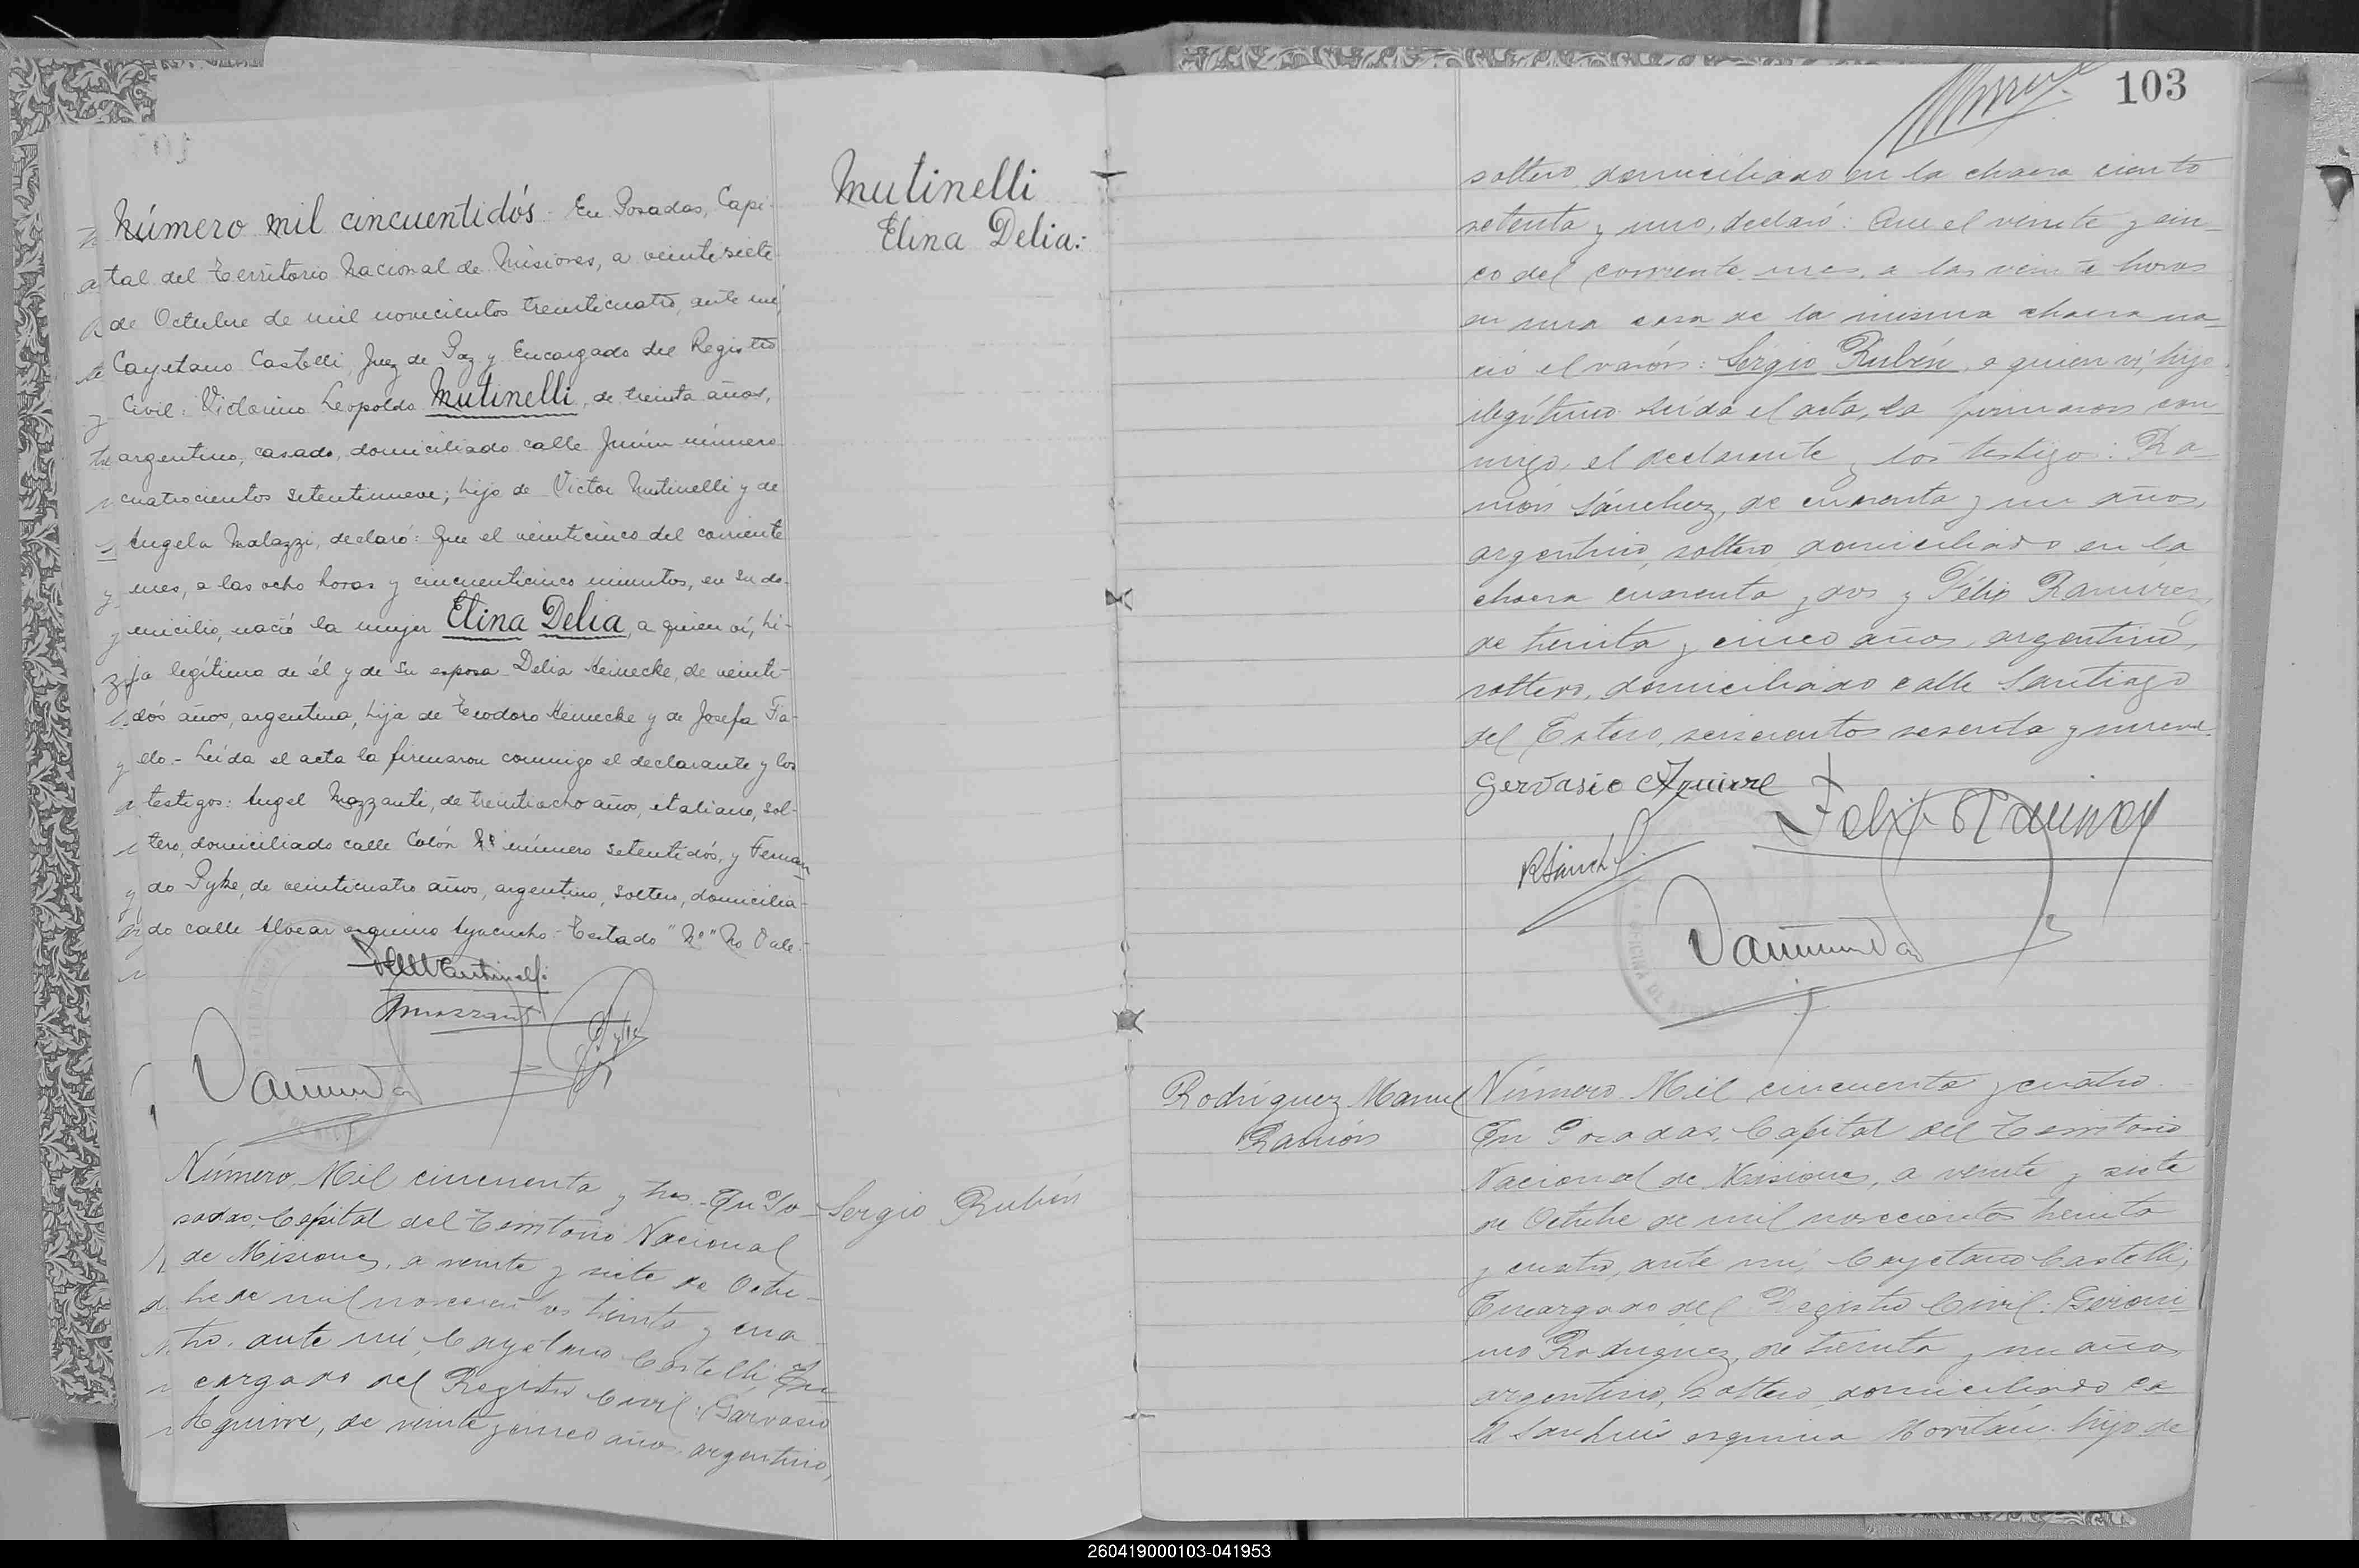 Número mil cincuentidós - En Posadas, Capi-
tal del Territorio Nacional de Misiones, a veintisiete
de Octubre de mil novecientos treinticuatro, ante mí,
Cayetano Castelli, Juez de Paz y Encargado del Registro
Civil: Victorino Leopoldo Mutinelli, de treinta años,
argentino, casado, domiciliado calle Junín número
cuatrocientos setentinueve; hijo de Victor Mutinelli y de
Angela Malazzi, declaró: Que el veinticinco del corriente
mes, a las ocho horas y cincuenticinco minutos, en su do-
micilio, nació la mujer Elina Delia, a quien ví, hi-
ja legítima de él y de su esposa Delia Heinecke, de veinti-
dós años, argentina, hija de Teodoro Heinecke y de Josefa Fa-
ello.- Leída el acta la firmaron conmigo el declarante y los
testigos: Angel Mazzante, de treintiocho años, italiano, sol-
tero, domiciliado calle Colón Nº número setentidós, y Fernan
do Pyke, de veinticuatro años, argentino, soltero, domicilia-
do calle Alvear esquina Ayacucho - Testado "Nº" No Vale.-
Mutinelli
Elina Delia:-
Número Mil cincuenta y tres - En Po-
sadas, Capital del Territorio Nacional
de Misiones, a veinte y siete de Octu-
bre de mil novecientos treinta y cua-
tro, ante mí, Cayetano Castelli, En-
cargado del Registro Civil: Garvasio
Aguirre, de veinte y cinco años, argentino,
Sergio Rubén
103
soltero, domiciliado en la chacra ciento
setenta y uno, declaró: Que el veinte y cin-
co del corriente mes, a las veinte horas
en una casa de la misma chacra na-
ció el varón: Sergio Rubén, a quien ví, hijo
ilegítimo. Leída el acta, la firmaron con
migo, el declarante y los testigos: Ra-
món Sánchez, de cuarenta y un años,
argentino, soltero, domiciliado en la
chacra cuarenta y dos y Félix Ramírez,
de treinta y cinco años, argentino,
soltero, domiciliado calle Santiago
del Estero, seiscientos sesenta y nueve.
Gervasio Aguirre
Felix Ramirez
RSánchez
Rodríguez Manuel
Ramón
Número Mil cincuenta y cuatro
En Posadas, Capital del Territorio
Nacional de Misiones, a veinte y siete
de Octubre de mil novecientos treinta
y cuatro, ante mí, Cayetano Castelli,
Encargado del Registro Civil: Geróni-
mo Rodríguez, de treinta y un años
argentino, soltero, domiciliado ca
lle San Luis esquina hijo de
260419000103-041953